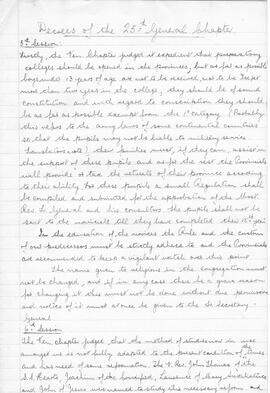 Decrees of the 25th General Chapter
5th Session
Firstly, the Ven Chapter judged it expedient that preparatory
colleges should be opened in the Provinces, but as far as possible
boys under 13 years of age are not to be received, nor to be kept
more than two years in the college; they should be of sound
constitution and with regard to conscription they should
be as far as possible exempt from the 1st category (Probably
this refers to the army laws of some continental countries
so that the pupils may not be liable to military service
translators note), their families must, if they can, assist in
the support of these pupils and as for the rest the Provincials
will provide or tax the retreats of their province according
to their ability. For these pupils a small Regulation shall
be compiled and submitted for the approbation of the Most
Rev. Fr. General and his consultors. The pupils shall not be
sent to the novitiate till they have completed their 15th year.
In the education of the novices the Rule and the custom
of our predecessors must be strictly adhered to and the Provincials
are recommended to keep a vigilant watch over this point
The name given to religious in the congregation must
not be changed, and if in any case there be a grave reason
for changing it this must not be done without due permission
and notice of it must at once be given to the Secretary-
General.
6th Session
The Ven chapter judged that the method of studies now in use
amongst us is not fully adapted to the present condition of times
and has need of some reformation. The V. Rev. John Thomas of the
S.S. Hearts, Joachim of the Immaculate, Laurence of Mary
and John of Jesus were named to study this necessary reform and